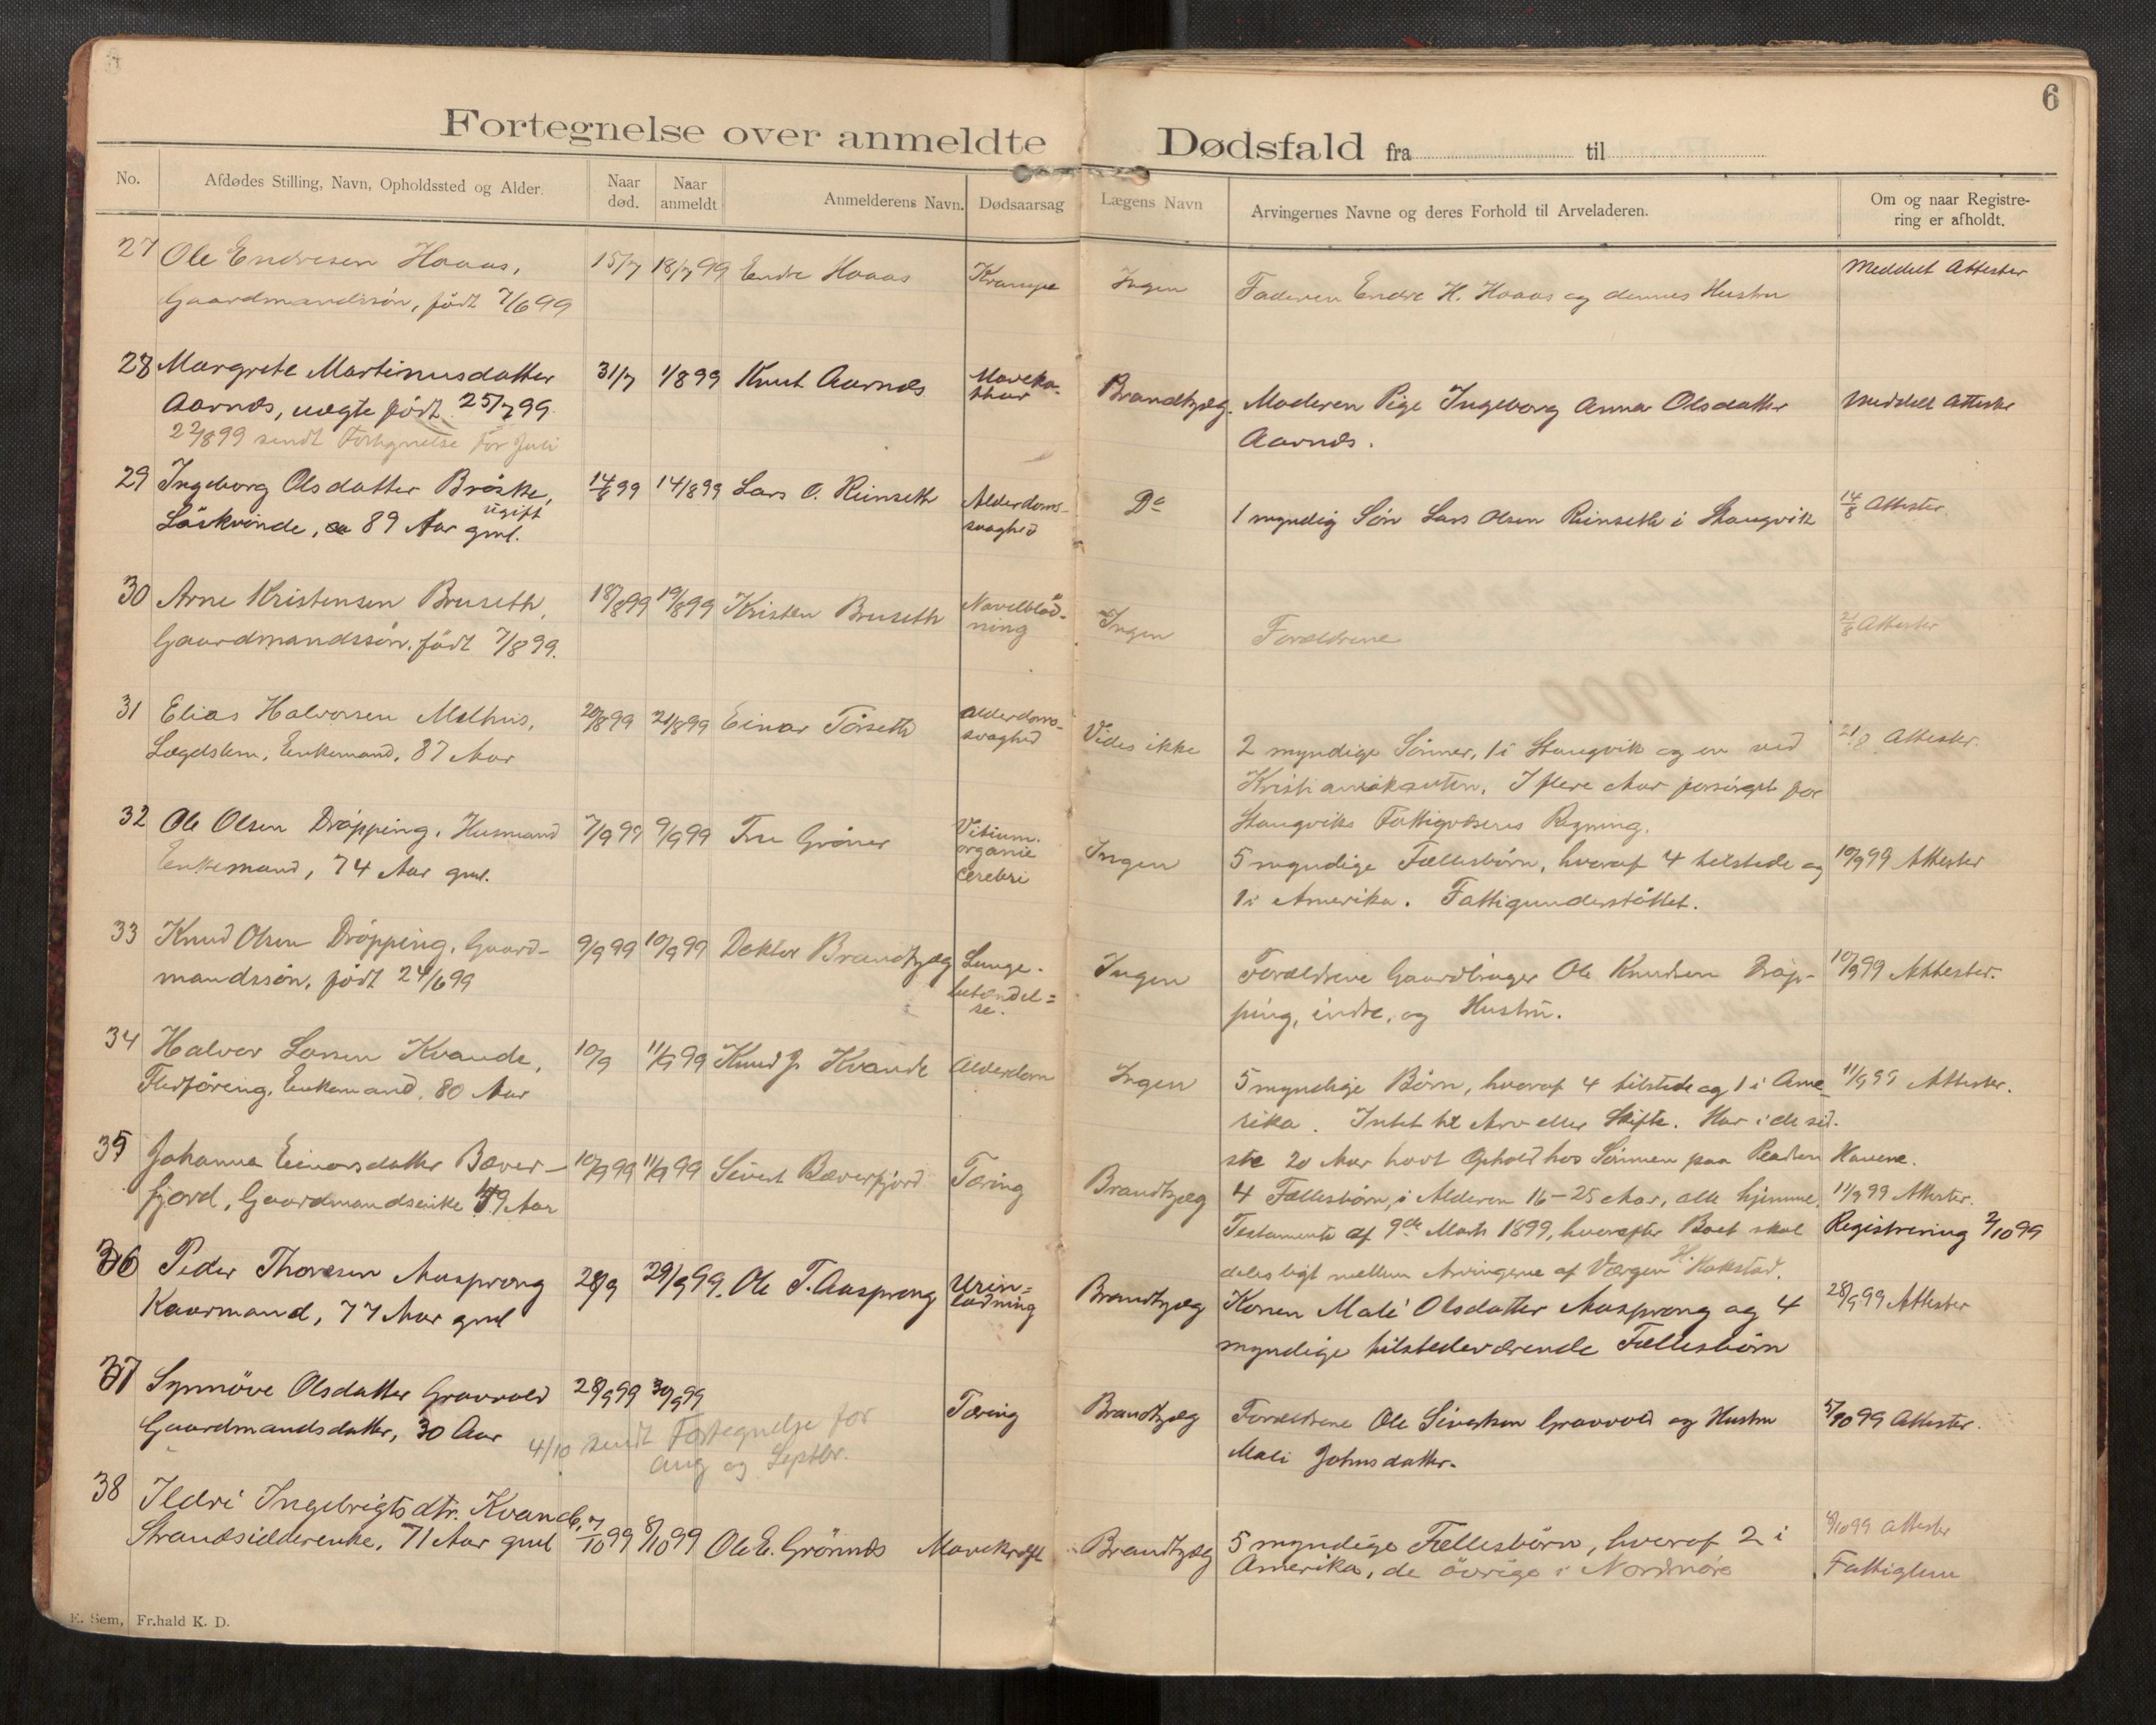 6
Fortegnelse over anmeldte Dødsfald fra til
No.
Afdødes Stilling, Navn, Opholdssted og Alder.
Naar død.
Naar anmeldt
Anmelderens Navn.
Dødsaarsag
Lægens Navn
Arvingernes Navne og deres Forhold til Arveladeren.
Om og naar Registre-
ring er afholdt.
27 Ole Endresen Haaas, 15/7 18/7 99 Endre Haaas Krampe Ingen Faderen Endre H. Haaas og dennes Hustru Meddelt Attester
Gaardmandssøn, født 7/6 99
28 Margrete Martinusdatter 31/7 1/8 99 Knut Aarnæs Maveka- Brandtzæg. Moderen Pige Ingeborg Anna Olsdatter Meddelt Atteste
Aarnæs, uægte født 25/7 99. thar Aarnæs.
22/8 99 sendt Fortegnelse for Juli
29 Ingeborg Olsdatter Bröske, 14/8 99 14/8 99 Lars O. Rinseth Alderdoms- Do 1 myndig Søn Lars Olsen Rinseth i Stangvik 14/8 Attester.
ugift
Löskvinde, ca 89 Aar gml. svaghed
30 Arne Kristensen Bruseth, 18/8 99 19/8 99 Kristen Bruseth Navelblöd- Ingen Forældrene 21/8 Attester
Gaardmandssön, født 7/8 99. ning
31 Elias Halvorsen Melhus, 20/8 99 21/8 99 Einar Törseth Alderdoms- Vides ikke 2 myndige Sönner, 1 i Stangvik og en ved 21/8 Attester.
Lægdslem, Enkemand, 87 Aar svaghed
I flere Aar forsörget for
Stangviks Fattigvæsens Regning.
32 Ole Olsen Dröpping, Husmand 7/9 99 9/9 99 Fru Gröner Vitium. Ingen 5 myndige Fællesbörn, hvoraf 4 tilstede og 10/9 99 Attester
Enkemand, 74 Aar gml. organie 1 i Amerika. Fattigunderstöttet.
cerebri
33 Knud Olsen Dröpping, Gaard- 9/9 99 10/9 99 Doktor Brandtzæg Lunge- Ingen Forældrene Gaardbruger Ole Knudsen Dröp- 10/9 99 Attester.
mandssön, født 24/6 99 betændel= ping, indre, og Hustru.
se.
34 Halvor Larsen Kvande, 10/9 11/9 99 Knud J. Kvande Alderdom Ingen 5 myndige Börn, hvoraf 4 tilstede og 1 i Ame- 11/9 99 Attester.
Fledföring, Enkemand, 80 Aar rika. Intet til Arv eller Skifte. Har i de sid-
ste 20 Aar havt Ophold hos Sönnen paa
35 Johanna Einarsdatter Bæver- 10/9 99 11/9 99 Sivert Bæverfjord Tæring Brandtzæg 4 Fællesbörn, i Alderen 16-25 Aar, alle hjemme. 11/9 99 Attester.
fjord, Gaardmandsenke 49 Aar Testamente af 9de Marts 1899, hvorefter Boet skal Registrering 2/10 99
deles ligt mellem Arvingerne af Værgen H. Hakstad.
36 Peder Thoresen Aasprong 28/9 29/9 99. Ole T. Aasprong Urin= Brandtzæg Konen Mali Olsdatter Aasprong og 4 28/9 99 Attester
Kaarmand, 77 Aar gml ladning myndige tilstedeværende Fællesbörn
37 Synnöve Olsdatter Gravvold 28/9 99 30/9 99 Tæring Brandtzæg Forældrene Ole Sivertsen Gravvold og Hustru 5/10 99 Attester.
Gaardmandsdatter, 30 Aar Mali Johnsdatter.
4/10 sendt Fortegnelse for
Aug og Septbr.
38 Ildri Ingebrigtsdtr. Kvande, 7/10 99 8/10 99 Ole E. Grönnæs Mavekræft Brandtzæg 5 myndige Fællesbörn, hvoraf 2 i 8/10 99 Attester
Strandsidderenke, 71 Aar gml Amerika, de övrige i Nordmöre Fattiglem
E. Sem, Fr.hald K. D.